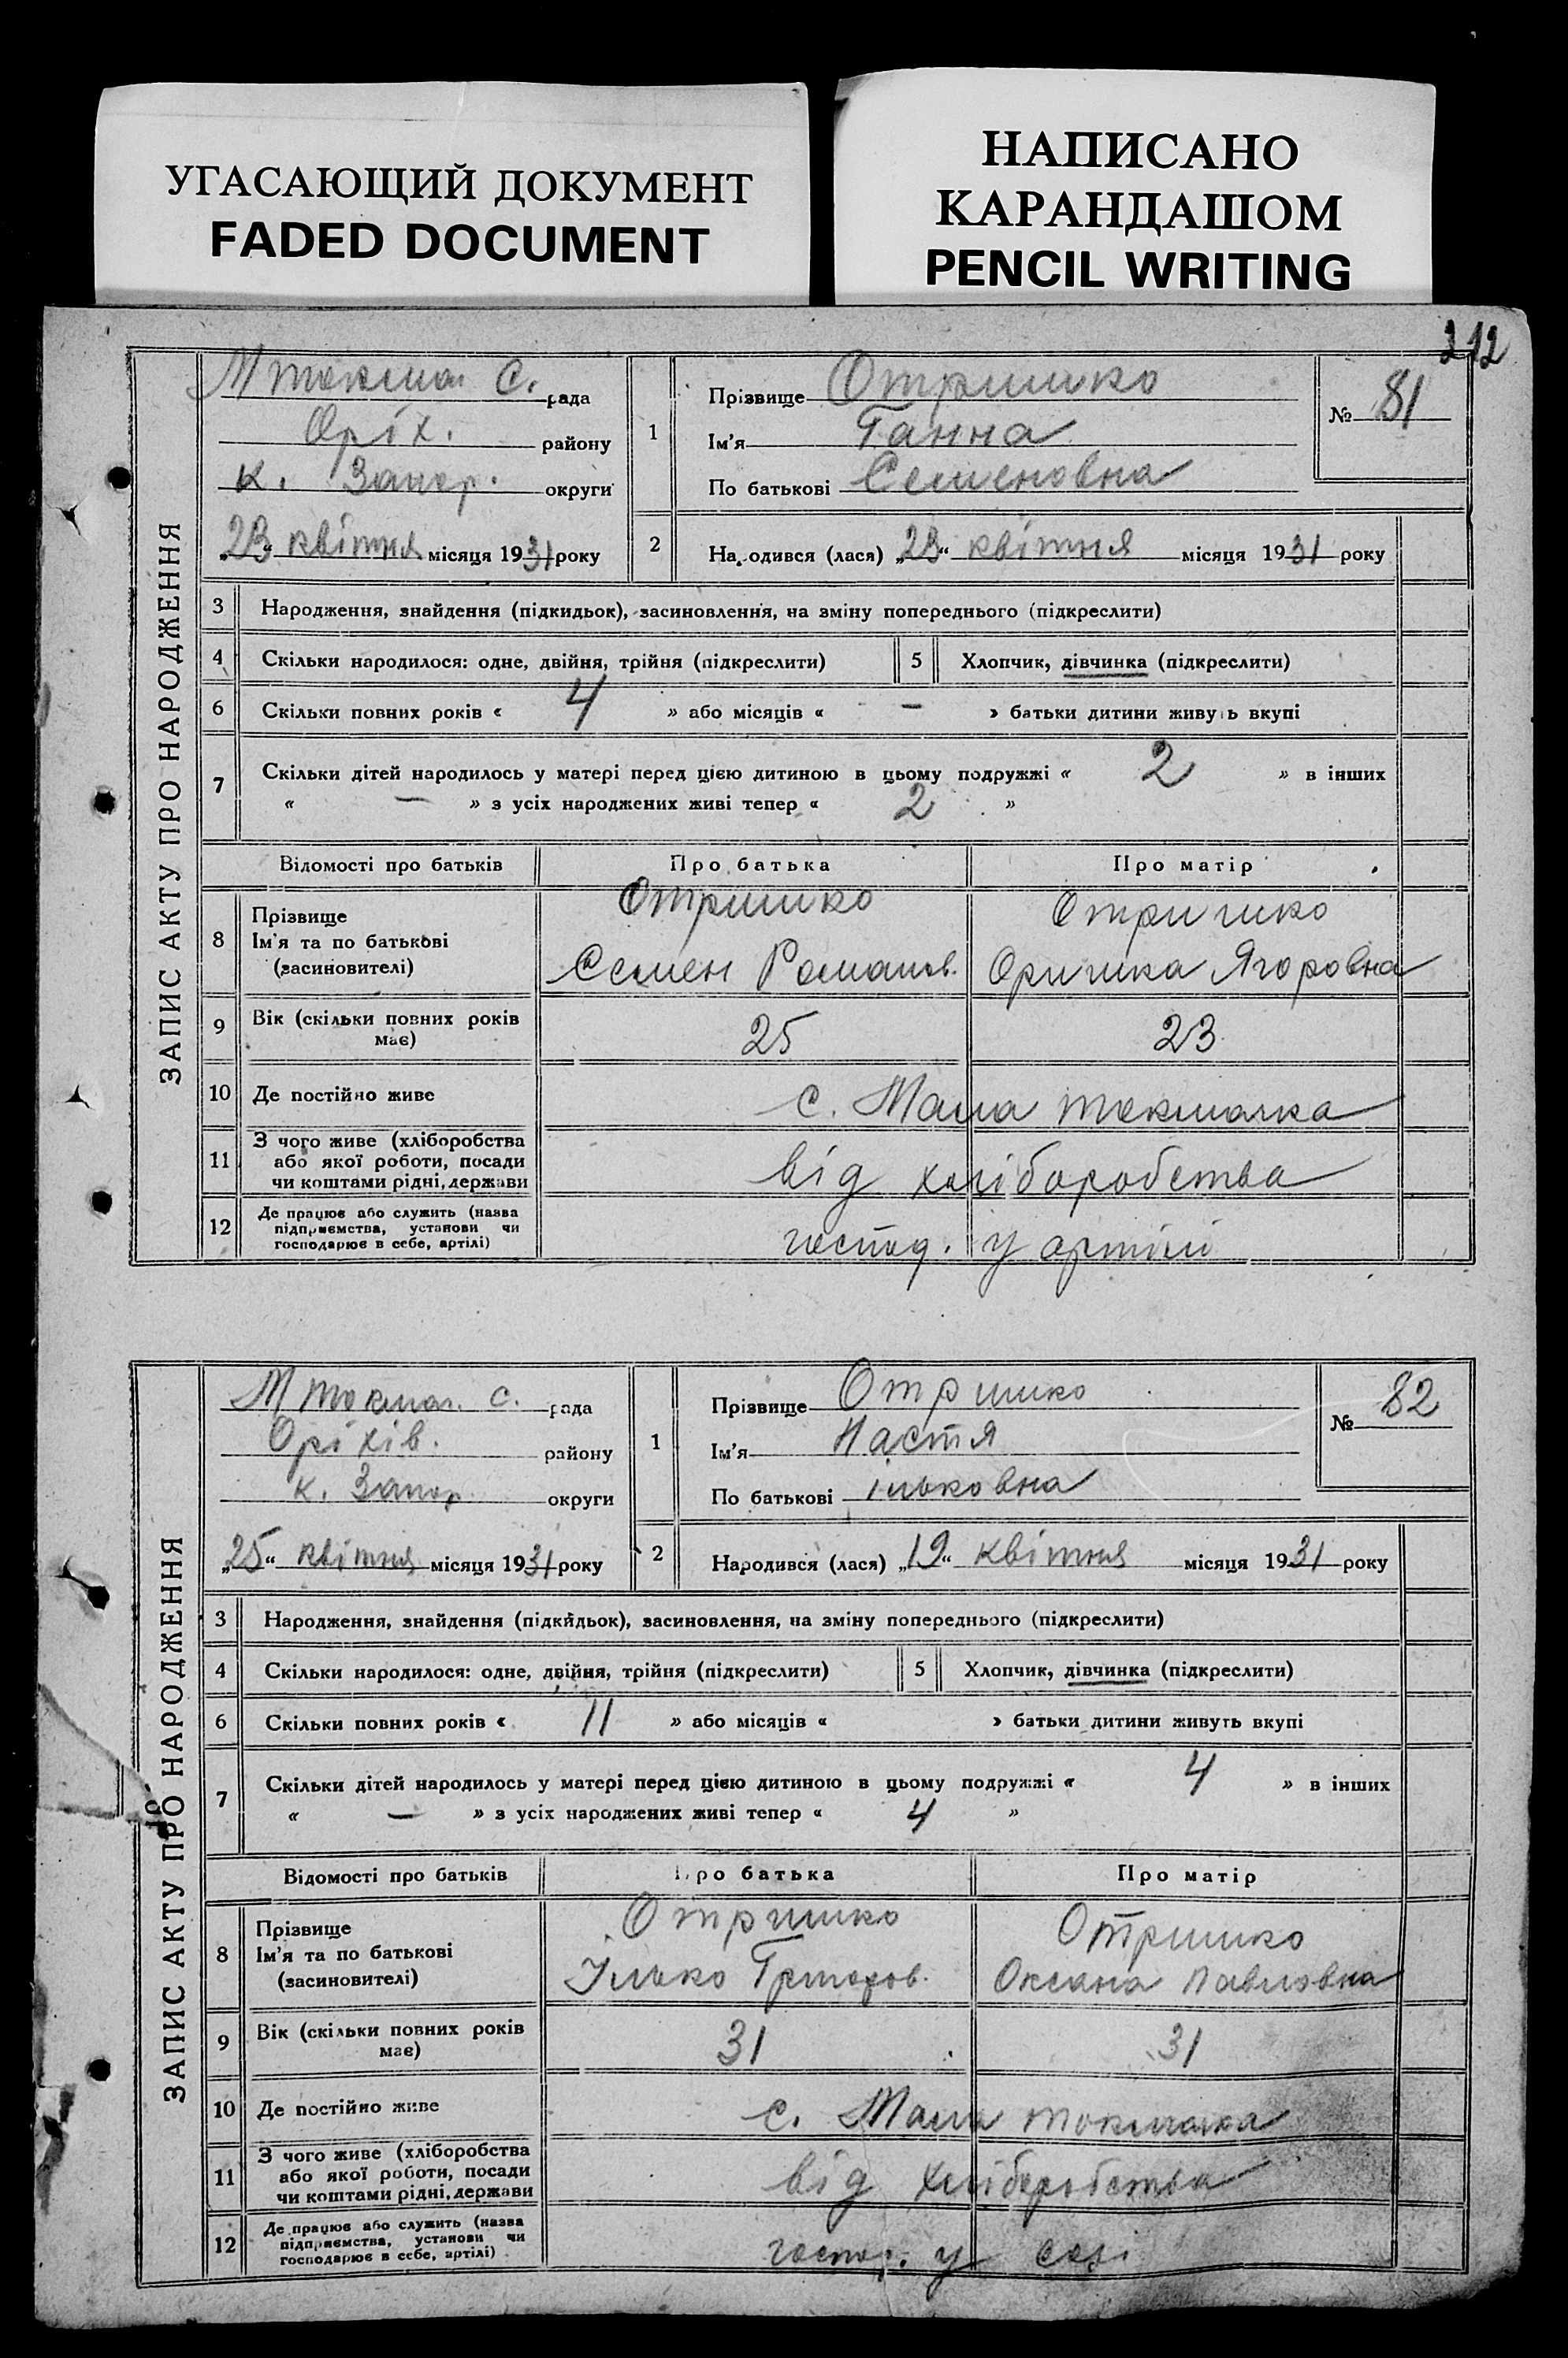 УГАСАЮЩИЙ ДОКУМЕНТ
FADED DOCUMENT
НАПИСАНО
КАРАНДАШОМ
PENCIL WRITING
212
ЗАПИС АКТУ ПРО НАРОДЖЕННЯ
М токмач. С. рада
Оріх. району
к. Запор. округи
„23“ квітня місяця 1931 року
1 Прізвище Отришко
Ім'я Ганна
По батькові Семеновна
№ 81
2 Народився (лася) „23“ квітня місяця 1931 року
3 Народження, знайдення (підкидьок), засиновлення, на зміну попереднього (підкреслити)
4 Скільки народилося: одне, двійня, трійня (підкреслити) 5 Хлопчик, дівчинка (підкреслити)
6 Скільки повних років « 4 » або місяців « — » батьки дитини живуть вкупі
7 Скільки дітей народилось у матері перед цією дитиною в цьому подружжі « 2 » в інших
« — » з усіх народжених живі тепер « 2 »
Відомості про батьків Про батька Про матір
8 Прізвище Отришко Отришко
Ім'я та по батькові
(засиновителі) Семен Романов. Оришка Ягоровна
9 Вік (скільки повних років
має) 25 23
10 Де постійно живе с. Мала токмачка
11 З чого живе (хліборобства
або якої роботи, посади
чи коштами рідні, держави від хліборобства
12 Де працює або служить (назва
підприємства, установи чи
господарює в себе, артілі) господ. у артілі
ЗАПИС АКТУ ПРО НАРОДЖЕННЯ
М токмач. С. рада
Оріхів. району
к. Запор. округи
„25“ квітня місяця 1931 року
1 Прізвище Отришко
Ім'я Настя
По батькові Ільковна
№ 82
2 Народився (лася) „19“ квітня місяця 1931 року
3 Народження, знайдення (підкидьок), засиновлення, на зміну попереднього (підкреслити)
4 Скільки народилося: одне, двійня, трійня (підкреслити) 5 Хлопчик, дівчинка (підкреслити)
6 Скільки повних років « 11 » або місяців « » батьки дитини живуть вкупі
7 Скільки дітей народилось у матері перед цією дитиною в цьому подружжі « 4 » в інших
« — » з усіх народжених живі тепер « 4 »
Відомості про батьків Про батька Про матір
8 Прізвище Отришко Отришко
Ім'я та по батькові
(засиновителі) Ілько Григоров. Оксана Павловна
9 Вік (скільки повних років
має) 31 31
10 Де постійно живе с. Мала токмачка
11 З чого живе (хліборобства
або якої роботи, посади
чи коштами рідні, держави від хліборобства
12 Де працює або служить (назва
підприємства, установи чи
господарює в себе, артілі) госпор. у